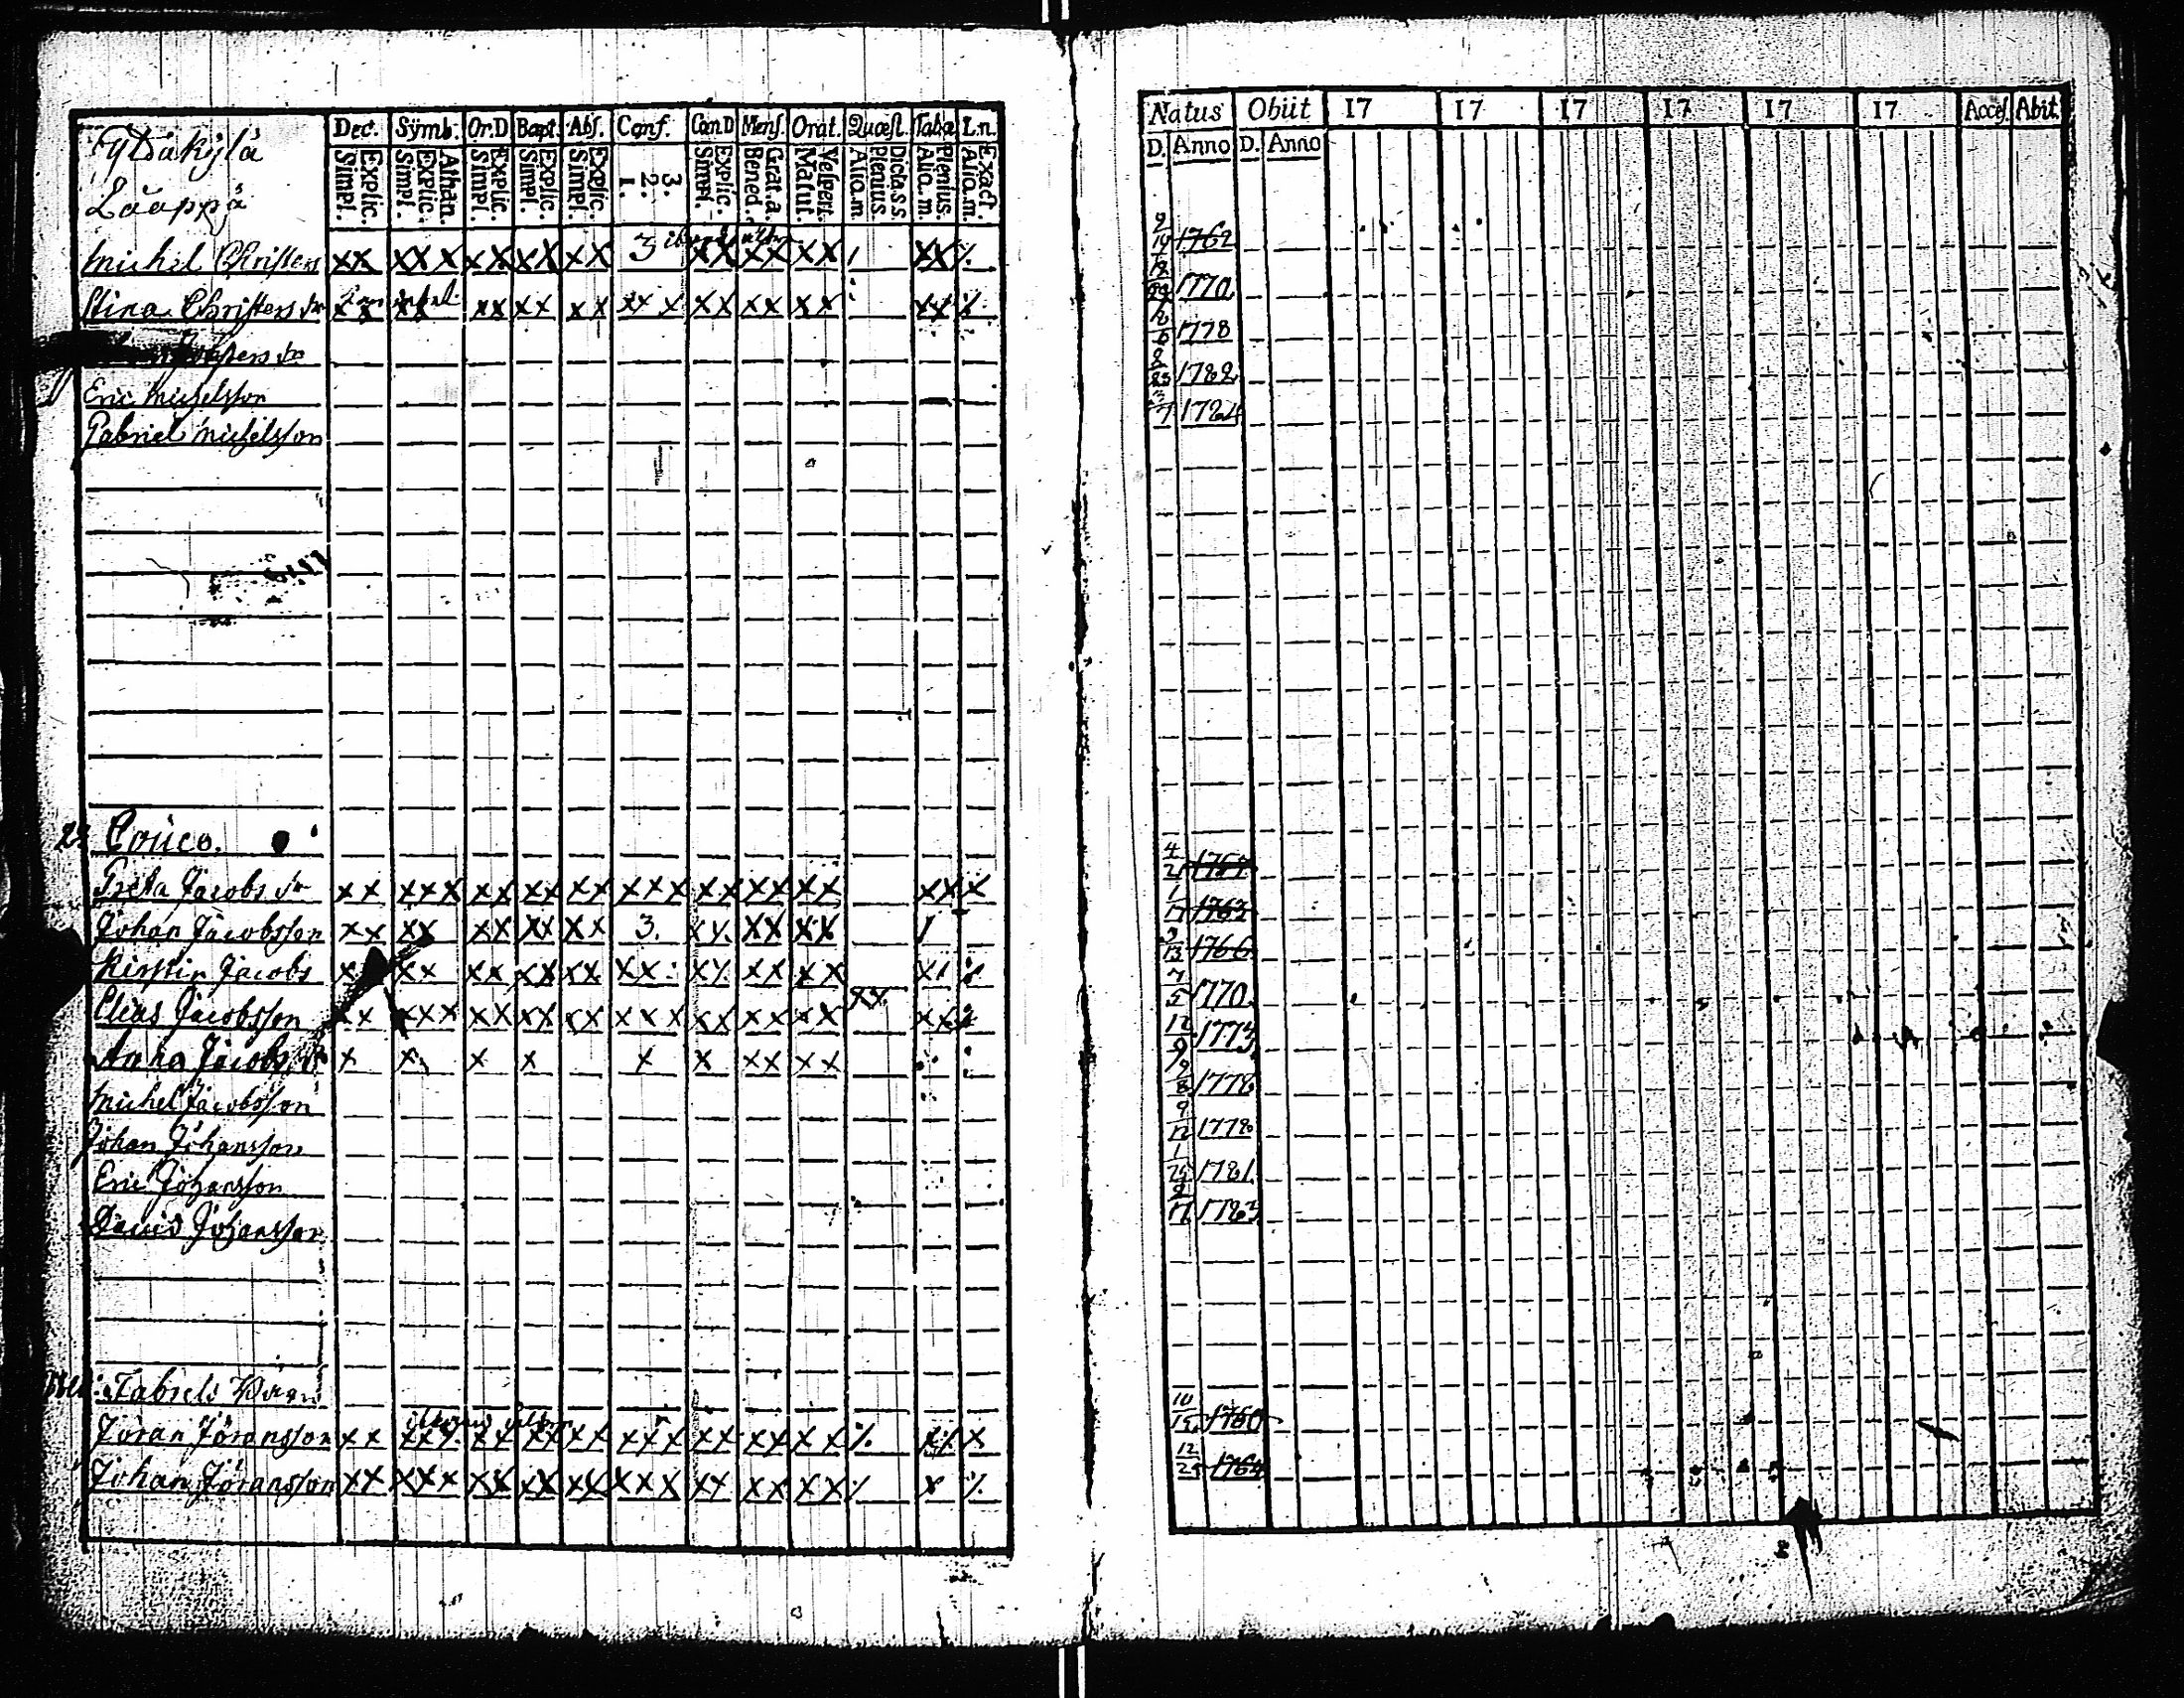 Dec. Symb. Or.D Bapt. Abs. Conf. Cœn.D Mens. Orat. Quæst. Taba L.n.
Explic. Simpl. Athan. Explic. Simpl. Explic. Simpl. Explic. Simpl. Explic. Simpl. 3. 2. 1. Explic. Simpl. Grat.a. Bened. Vespert. Matut. Dicta.s.s. Plenius. Aliq.m. Plenius. Aliq.m. Exact. Aliq.m.
Lauppa
Michel Christers xx xxx xx xx xx 3 xx xx xx xx
Stina Christers dr xx xx xx xx xx xx x xx xx xx xx
Eric Michelsson
Gabriel Michelsson
2. Couco.
Greta Jacobs dr xx xxx xx xx xx xxx xx xx xx xx x
Johan Jacobsson xx xx xx xx xx 3. xx xx
Kirstin Jacobs xx xx xx xx xx xx xx
Elias Jacobsson xx xxx xx xx xx xxx xx xx xx xx
Anna Jacobs dr x x x x x xx xx
Michel Jacobsson
Johan Johansson
Eric Johansson
David Johansson
Jöran Jöransson xx xx xx xx xxx xx xx xx x
Johan Jöransson xx xxx xx xx xx xxx xx xx xx x
Natus Obiit 17 17 17 17 17 17 Acces. Abit.
D. Anno D. Anno
1762
1770
1778
1782
1784
4/21
1/17 1763
3/13 1766
7/5 1770.
12/9 1773
2/8 1778
9/12 1778
1/25 1781.
1783
10/15 1760
12/24 1764